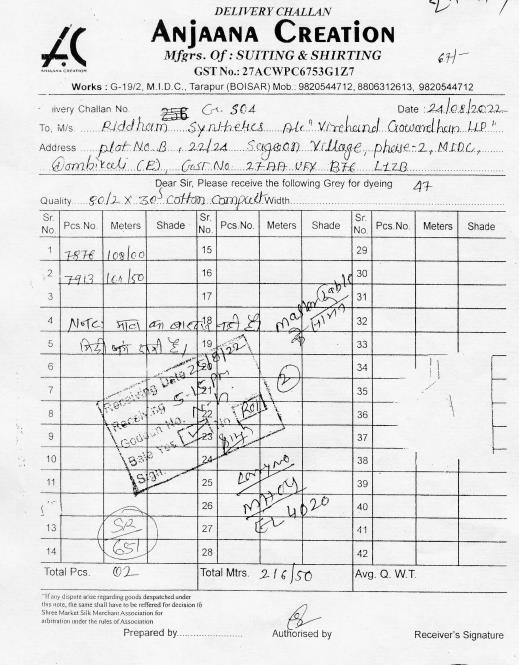 DELIVERY CHALLAN
Anjaana Creation
Mfgrs. Of : SUITING & SHIRTING
GST No.: 27ACWPC6753G1Z7
67/-
ANJAANA CREATION
Works : G-19/2, M.I.D.C., Tarapur (BOISAR) Mob.: 9820544712, 8806312613, 9820544712
ivery Challan No. 256 Gr. 504 Date : 24/08/2022
To, M/s Riddham Synthetics A/c "Virchand Gowardhan LLP"
Address plot No. B, 22/24 Sagaon Village, phase-2, MIDC,
Dombivali (E), Gst. No. 27AA B76 L1ZB
Dear Sir, Please receive the following Grey for dyeing 47
Quality 80/2 X 30s Cotton Compact Width
Sr. No. Pcs.No. Meters Shade Sr. No. Pcs.No. Meters Shade Sr. No. Meters Shade
1 7876 108/00 15 29
2 7913 16 30
3 17 31
4 Note: माल का 18 नही है। 32
5 19 33
6 20 34
7 21 35
8 22 36
9 23 37
10 24 38
11 25 39
26 40
13 27 41
14 28 42
Receiving Date 25/8/22
Receiving 5-15 PM
Godown No.
Bale Yes No Roll
Sign.
2
MH04
EL 4020
SR
651
Total Pcs. 02 Total Mtrs. 216/50 Avg. Q. W.T.
"If any dispute arise regarding goods despatched under
this note, the same shall have to be reffered for decision to
Shree Market Silk Merchant Association for
arbitration under the rules of Association
Prepared by Authorised by Receiver's Signature